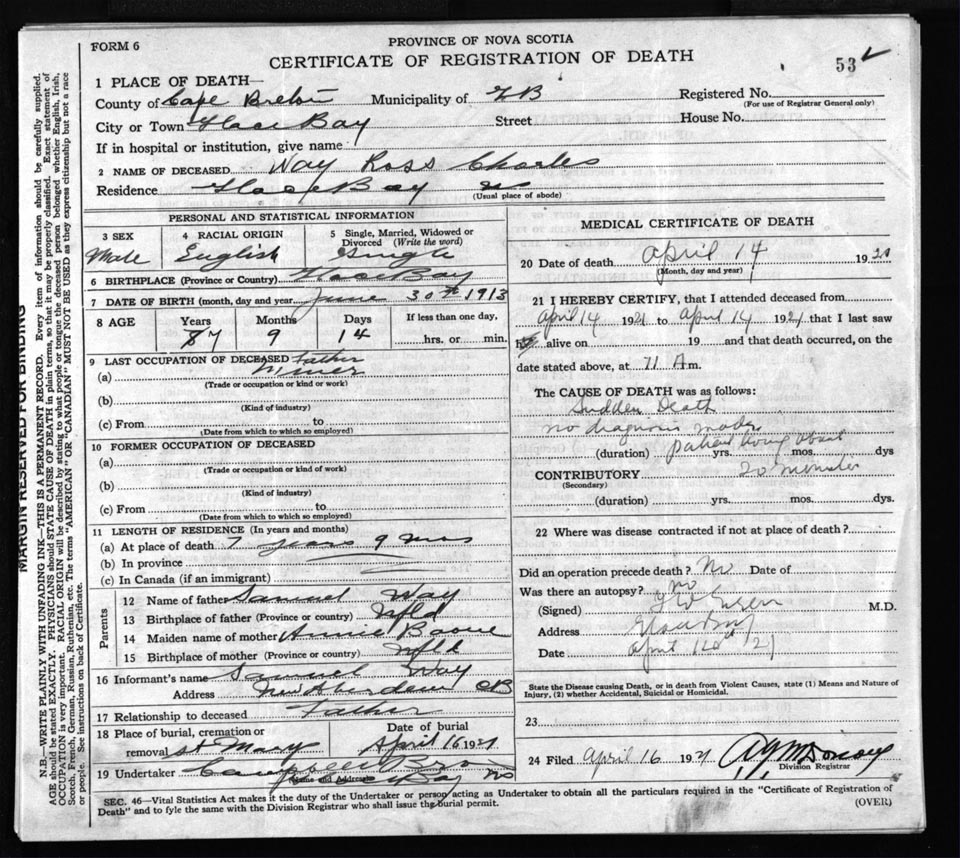 FORM 6
PROVINCE OF NOVA SCOTIA
CERTIFICATE OF REGISTRATION OF DEATH
53
1 PLACE OF DEATH—
County of Cape Breton Municipality of GB Registered No.
(For use of Registrar General only)
City or Town Glace Bay Street House No.
If in hospital or institution, give name
2 NAME OF DECEASED Way Ross Charles
Residence Glace Bay
(Usual place of abode)
PERSONAL AND STATISTICAL INFORMATION
3 SEX 4 RACIAL ORIGIN 5 Single, Married, Widowed or Divorced (Write the word)
Male English Single
6 BIRTHPLACE (Province or Country) Glace Bay
7 DATE OF BIRTH (month, day and year) June 30th 1913
8 AGE Years Months Days If less than one day,
7 9 14 hrs. or min.
9 LAST OCCUPATION OF DECEASED Father
(a) Miner
(Trade or occupation or kind or work)
(b)
(Kind of industry)
(c) From to
(Date from which to which so employed)
10 FORMER OCCUPATION OF DECEASED
(a)
(Trade or occupation or kind or work)
(b)
(Kind of industry)
(c) From to
(Date from which to which so employed)
11 LENGTH OF RESIDENCE (In years and months)
(a) At place of death 7 years 9 mos
(b) In province
(c) In Canada (if an immigrant)
Parents
12 Name of father Samuel Way
13 Birthplace of father (Province or country) Nfld
14 Maiden name of mother Annie Boone
15 Birthplace of mother (Province or country) Nfld
16 Informant's name Samuel Way
Address New Aberdeen CB
17 Relationship to deceased Father
18 Place of burial, cremation or Date of burial
removal St Mary April 16 1921
19 Undertaker Campbell Bros
(Name and Address) Glace Bay NS
MEDICAL CERTIFICATE OF DEATH
20 Date of death April 14 1921
(Month, day and year)
21 I HEREBY CERTIFY, that I attended deceased from
April 14 1921 to April 14 1921 that I last saw
alive on 19 and that death occurred, on the
date stated above, at 11 A m.
The CAUSE OF DEATH was as follows:
Sudden Death
no diagnosis made
patient living about
(duration) yrs. mos. dys
20 minutes
CONTRIBUTORY
(Secondary)
(duration) yrs. mos. dys.
22 Where was disease contracted if not at place of death?
Did an operation precede death? No Date of
Was there an autopsy? no
(Signed) M.D.
Address Glace Bay
Date April 21
State the Disease causing Death, or in death from Violent Causes, state (1) Means and Nature of
Injury, (2) whether Accidental, Suicidal or Homicidal.
23
24 Filed April 16 1921
Division Registrar
SEC. 46—Vital Statistics Act makes it the duty of the Undertaker or person acting as Undertaker to obtain all the particulars required in the "Certificate of Registration of
Death" and to fyle the same with the Division Registrar who shall issue the burial permit.
(OVER)
MARGIN RESERVED FOR BINDING
N.B.—WRITE PLAINLY WITH UNFADING INK—THIS IS A PERMANENT RECORD. Every item of information should be carefully supplied.
AGE should be stated EXACTLY. PHYSICIANS should STATE CAUSE OF DEATH in plain terms, so that it may be properly classified. Exact statement of
OCCUPATION is very important. RACIAL ORIGIN will be described by stating to what people or tongue the deceased person belonged whether English, Irish,
Scotch, French, German, Russian, Ruthenian, etc. The terms "AMERICAN" OR "CANADIAN" MUST NOT BE USED as they express citizenship but not a race
or people. See instructions on back of Certificate.